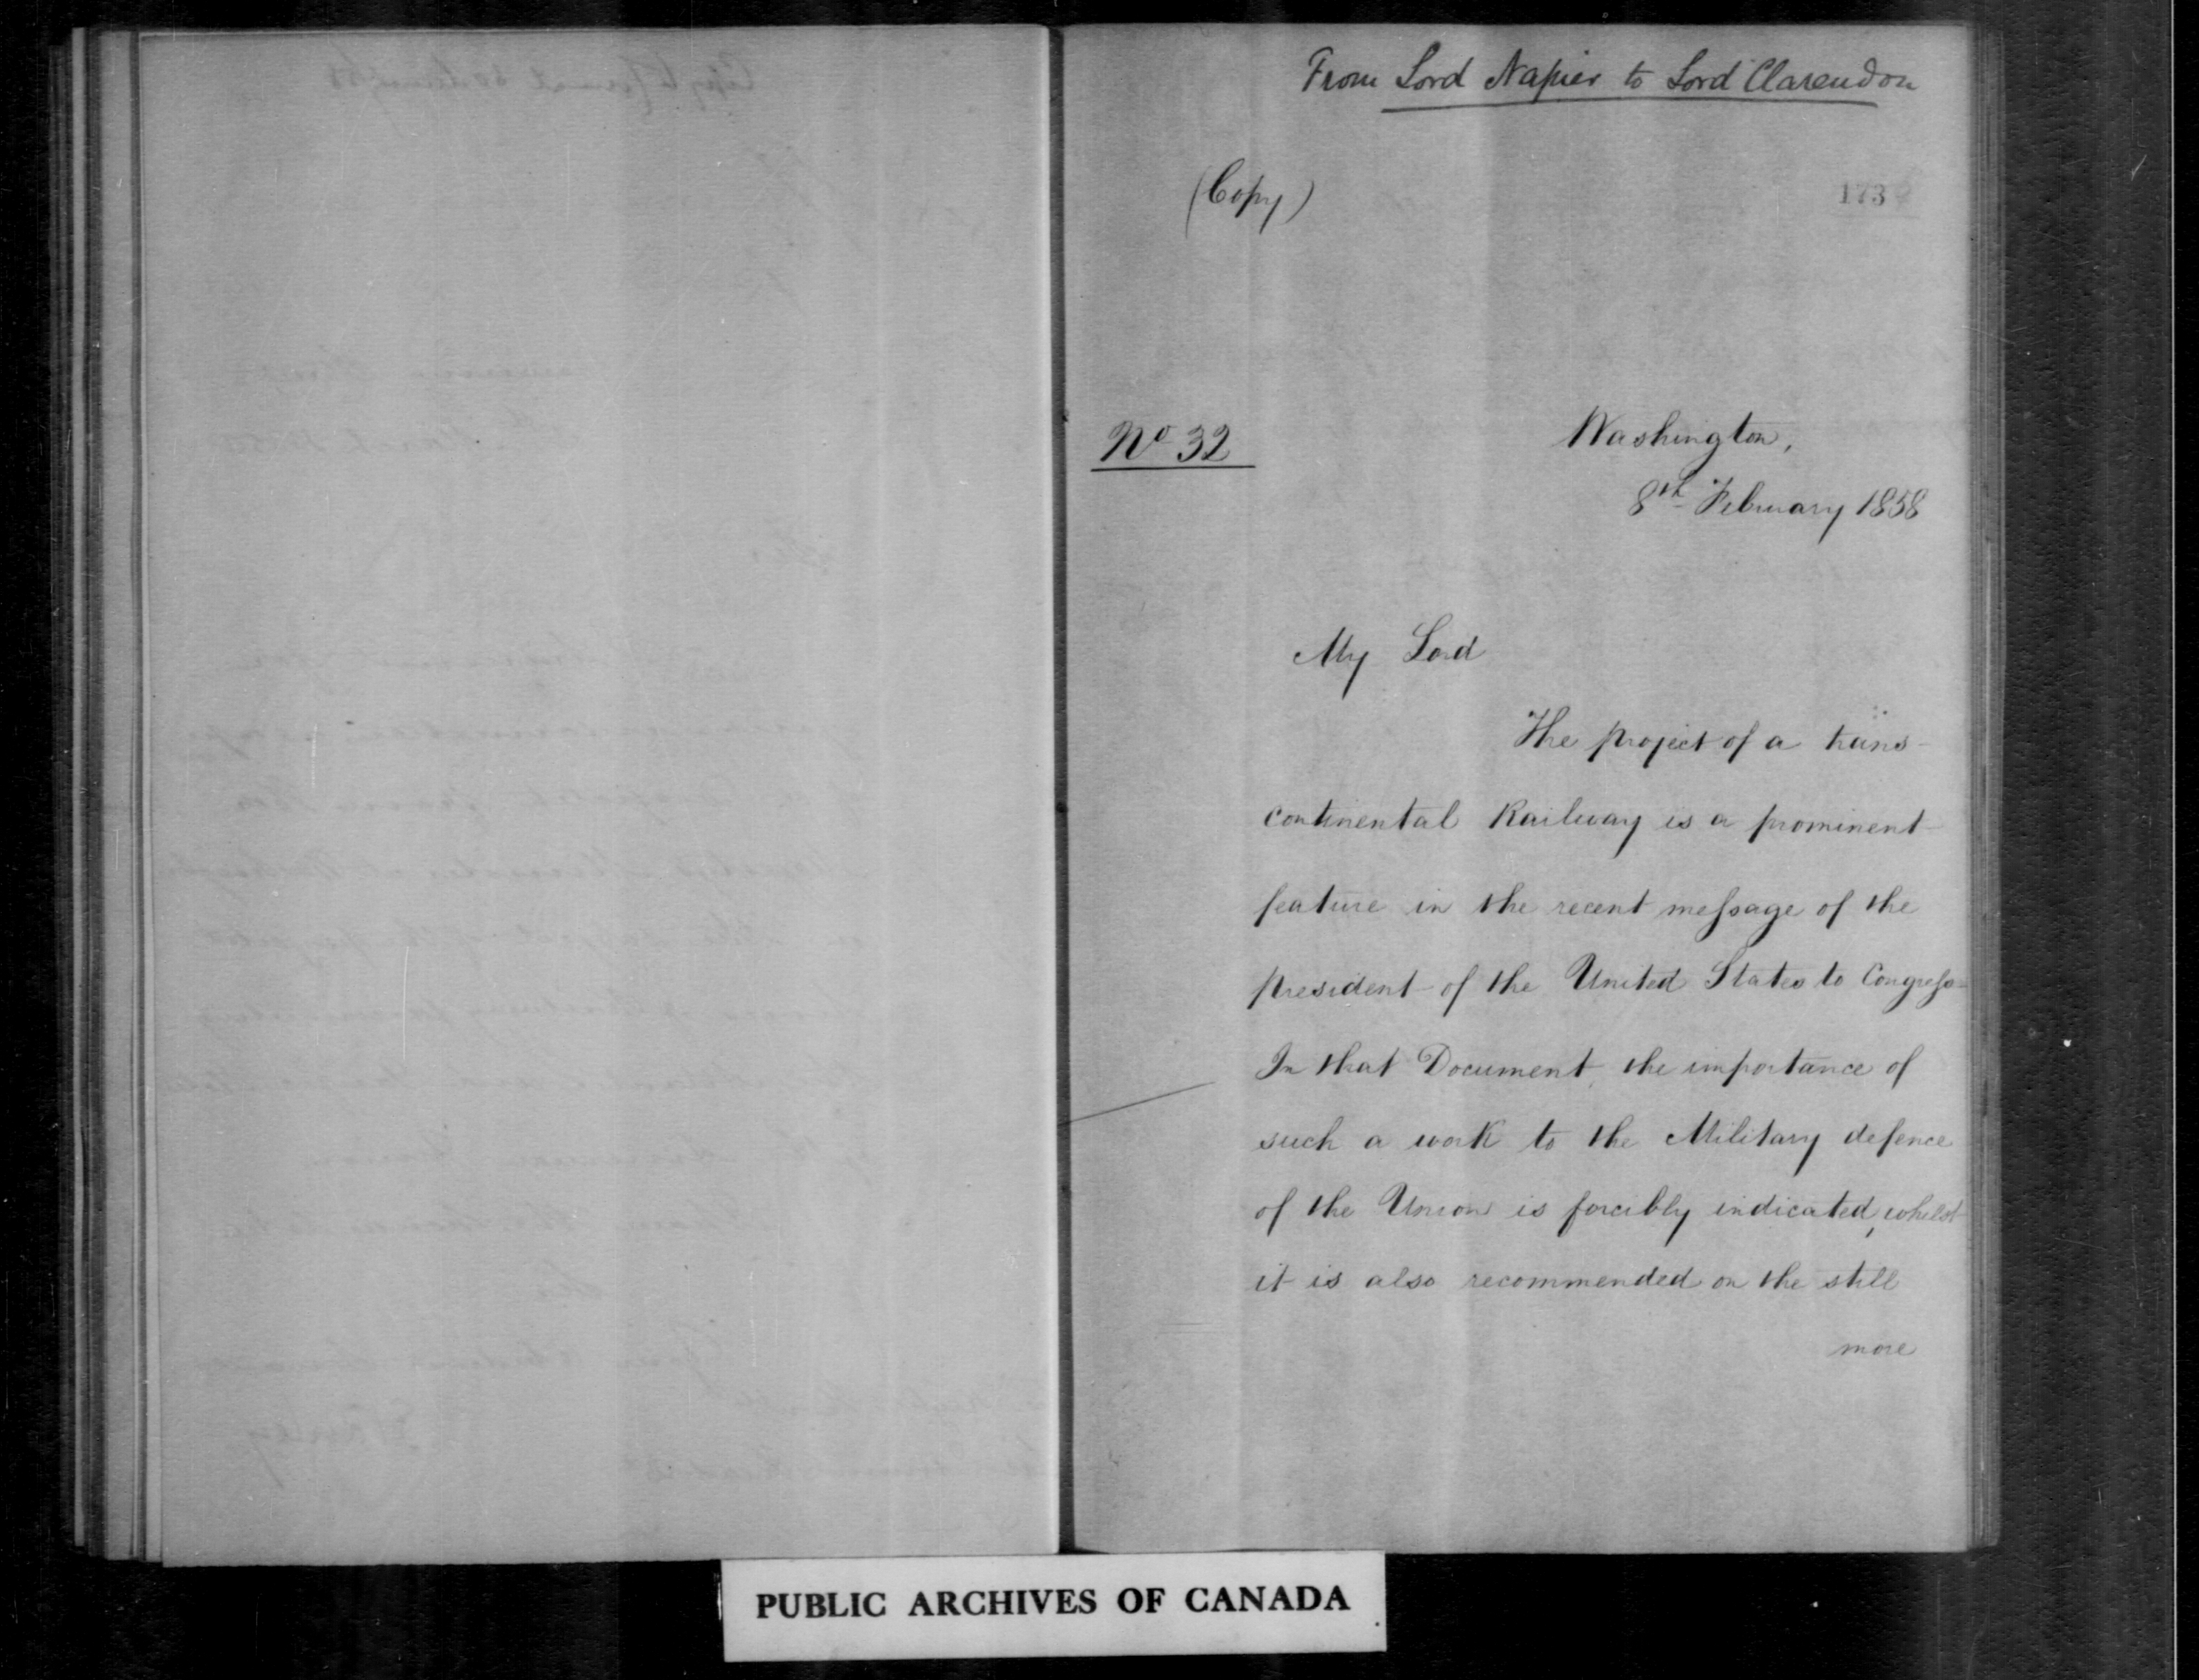 From Lord Napier to Lord Clarendon
(Copy)
173
No 32
Washington,
8th February 1858
My Lord
The project of a trans-
continental Railway is a prominent
feature in the recent meſsage of the
president of the United States to Congreſs-
In that Document, the importance of
such a work to the Military defence
of the Union is forcibly indicated, whilst
it is also recommended on the still
more
PUBLIC ARCHIVES OF CANADA